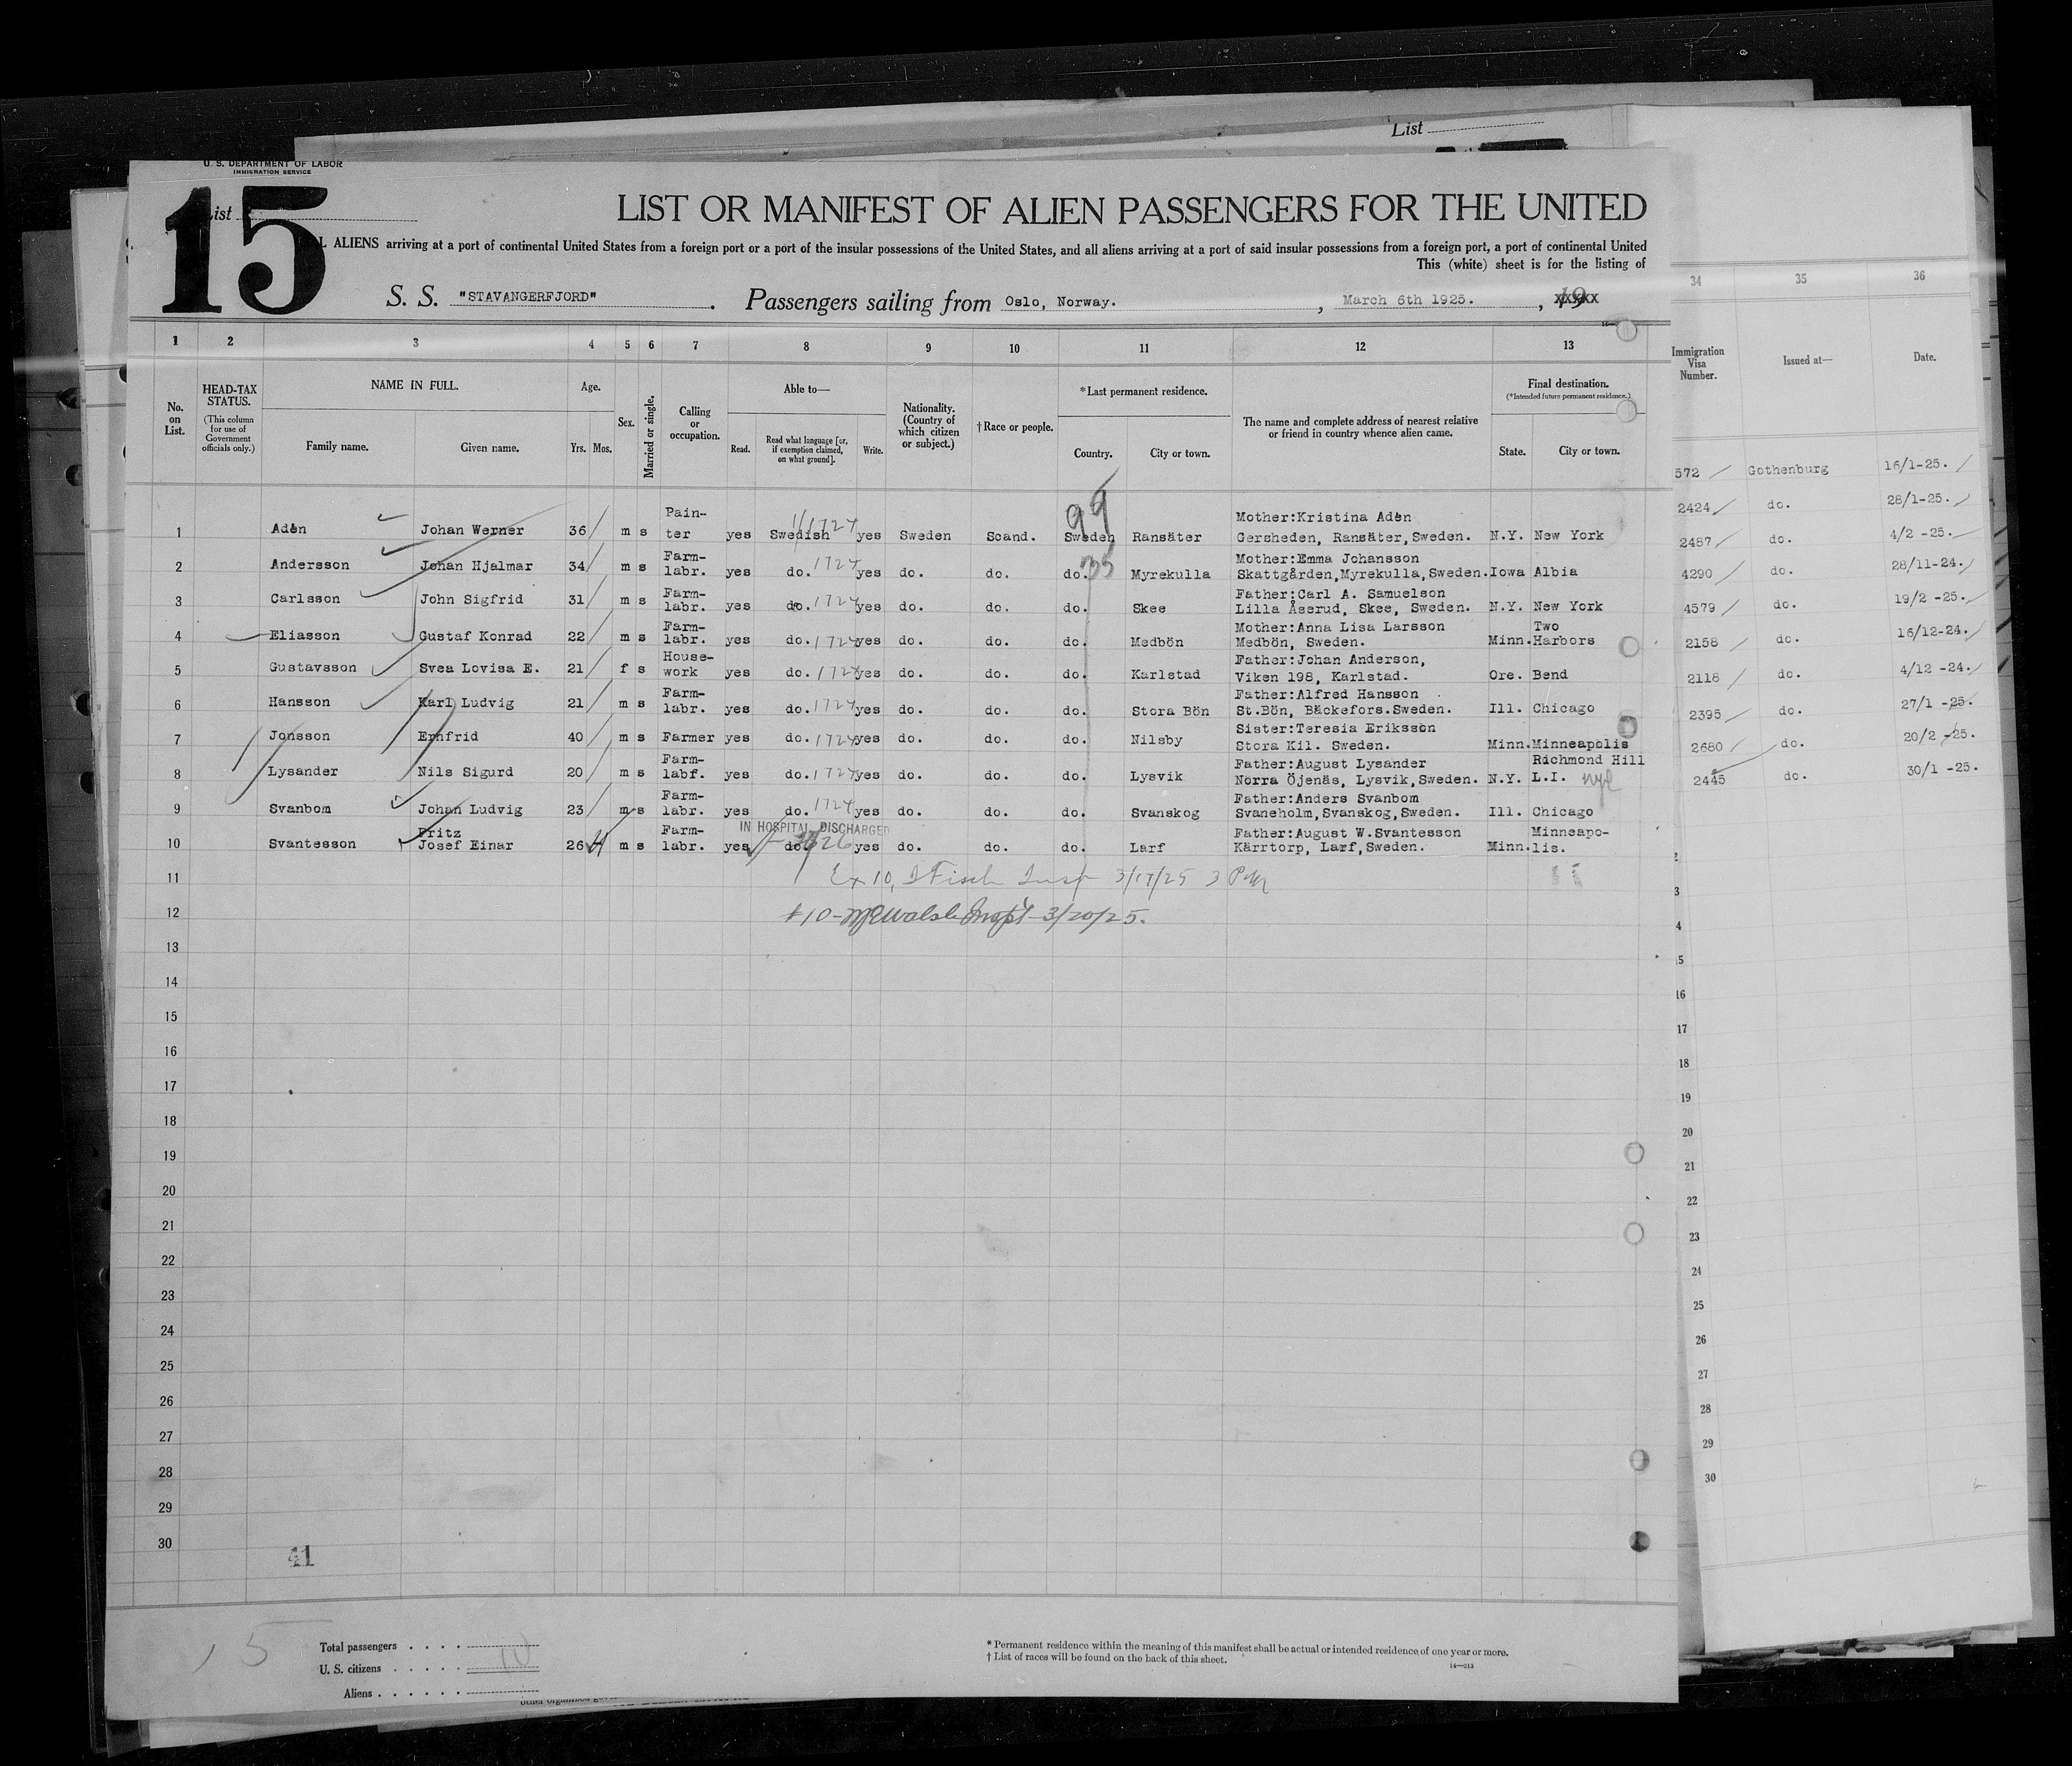 List
U. S. DEPARTMENT OF LABOR
IMMIGRATION SERVICE
15
List
LIST OR MANIFEST OF ALIEN PASSENGERS FOR THE UNITED
L ALIENS arriving at a port of continental United States from a foreign port or a port of the insular possessions of the United States, and all aliens arriving at a port of said insular possessions from a foreign port, a port of continental United
This (white) sheet is for the listing of
S. S. "STAVANGERFJORD". Passengers sailing from Oslo, Norway. , March 6th 1925. , 19
1 2 3 4 5 6 7 8 9 10 11 12 13 34 35 36
No. on List. HEAD-TAX STATUS. (This column for use of Government officials only.) NAME IN FULL. Family name. Given name. Age. Yrs. Mos. Sex. Married or single. Calling or occupation. Able to— Read. Read what language [or, if exemption claimed, on what ground]. Write. Nationality. (Country of which citizen or subject.) †Race or people. *Last permanent residence. Country. City or town. The name and complete address of nearest relative or friend in country whence alien came. Final destination. (*Intended future permanent residence.) State. City or town. Immigration Visa Number. Issued at— Date.
572 Gothenburg 16/1-25.
2424 do. 28/1-25.
2487 do. 4/2 -25.
4290 do. 28/11-24.
4579 do. 19/2 -25.
2158 do. 16/12-24.
2118 do. 4/12 -24.
2395 do. 27/1 -25.
2680 do. 20/2 -25.
2445 do. 30/1 -25.
99
35
Pain- Mother:Kristina Adèn
1 Adèn Johan Werner 36 m s ter yes Swedish 1724 yes Sweden Scand. Sweden Ransäter Gersheden, Ransäter,Sweden. N.Y. New York
Farm- Mother:Emma Johansson
2 Andersson Johan Hjalmar 34 m s labr. yes do. 1724 yes do. do. do. Myrekulla Skattgården,Myrekulla,Sweden. Iowa Albia
Farm- Father:Carl A. Samuelson
3 Carlsson John Sigfrid 31 m s labr. yes do. 1724 yes do. do. do. Skee Lilla Åserud, Skee, Sweden. N.Y. New York
Farm- Mother:Anna Lisa Larsson Two
4 Eliasson Gustaf Konrad 22 m s labr. yes do. 1724 yes do. do. do. Medbön Medbön, Sweden. Minn. Harbors
House- Father:Johan Anderson,
5 Gustavsson Svea Lovisa E. 21 f s work yes do. 1724 yes do. do. do. Karlstad Viken 198, Karlstad. Ore. Bend
Farm- Father:Alfred Hansson
6 Hansson Karl Ludvig 21 m s labr. yes do. 1724 yes do. do. do. Stora Bön St.Bön, Bäckefors.Sweden. Ill. Chicago
Sister:Teresia Eriksson
7 Jonsson Ernfrid 40 m s Farmer yes do. 1724 yes do. do. do. Nilsby Stora Kil. Sweden. Minn. Minneapolis
Farm- Father:August Lysander Richmond Hill
8 Lysander Nils Sigurd 20 m s labf. yes do. 1724 yes do. do. do. Lysvik Norra Öjenäs, Lysvik,Sweden. N.Y. L.I.
Farm- Father:Anders Svanbom
9 Svanbom Johan Ludvig 23 m s labr. yes do. 1724 yes do. do. do. Svanskog Svaneholm,Svanskog,Sweden. Ill. Chicago
IN HOSPITAL DISCHARGED
Fritz Farm- Father:August W.Svantesson Minneapo-
10 Svantesson Josef Einar 26 m s labr. yes do. yes do. do. do. Larf Kärrtorp, Larf,Sweden. Minn. lis.
11 Ex 10, Fisch Insp 3/17/25 3 PM
12 #10- Walsh Insp't 3/20/25.
13
14
15
16
17
18
19
20
21
22
23
24
25
26
27
28
29
30
2
3
4
15
16
17
18
19
20
21
22
23
24
25
26
27
28
29
30
41
15
Total passengers . . . . 10
U. S. citizens . . . . .
Aliens . . . . . .
* Permanent residence within the meaning of this manifest shall be actual or intended residence of one year or more.
† List of races will be found on the back of this sheet.
14—213